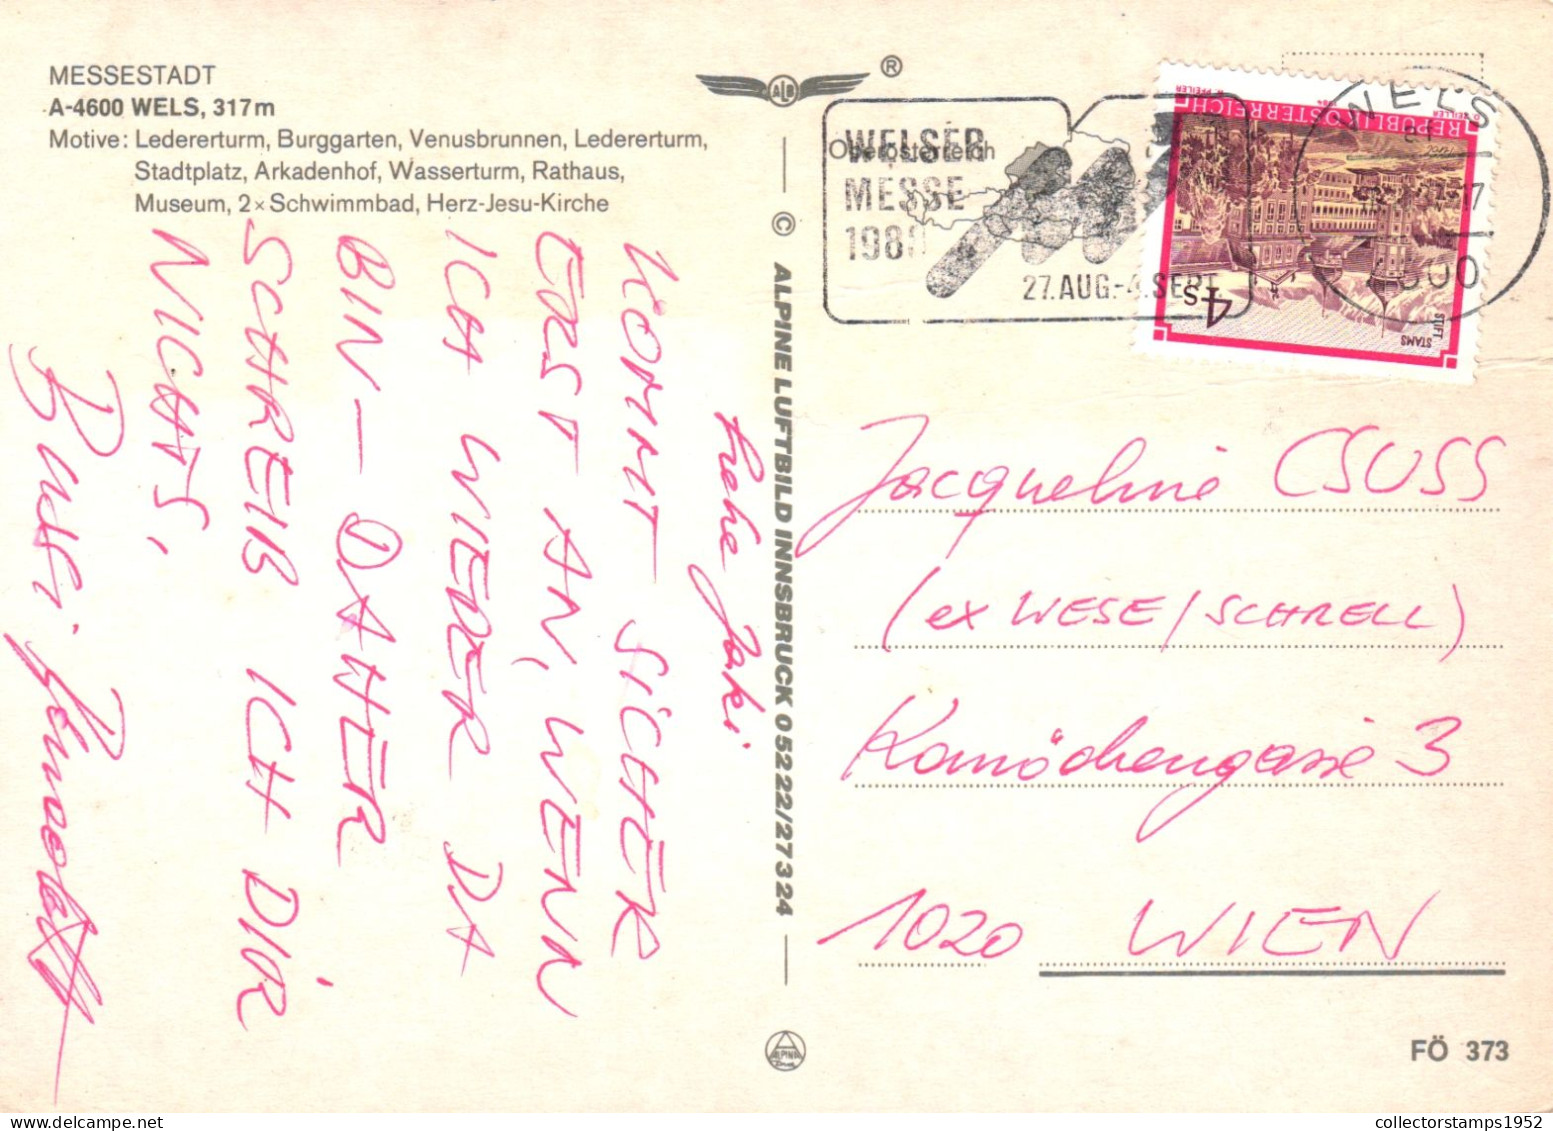 MESSESTADT
A-4600 WELS, 317m
Motive: Ledererturm, Burggarten, Venusbrunnen, Ledererturm,
Stadtplatz, Arkadenhof, Wasserturm, Rathaus,
Museum, 2×Schwimmbad, Herz-Jesu-Kirche
ALB
®
Oberösterreich
WELSER
MESSE
27.AUG.-4.SEPT.
WELS
REPUBLIK ÖSTERREICH
4 S
STIFT
STAMS
© ALPINE LUFTBILD INNSBRUCK 05222/27324
ALPINE
Liebe Jaki
KOMMT SICHER
ERST AN, WENN
ICH WIEDER DA
BIN – DAHER
SCHREIB ICH DIR
NICHTS,
Bussi
Jacqueline CSUSS
(ex WESE/SCHRELL)
3
1020 WIEN
FÖ 373
collectorstamps1952